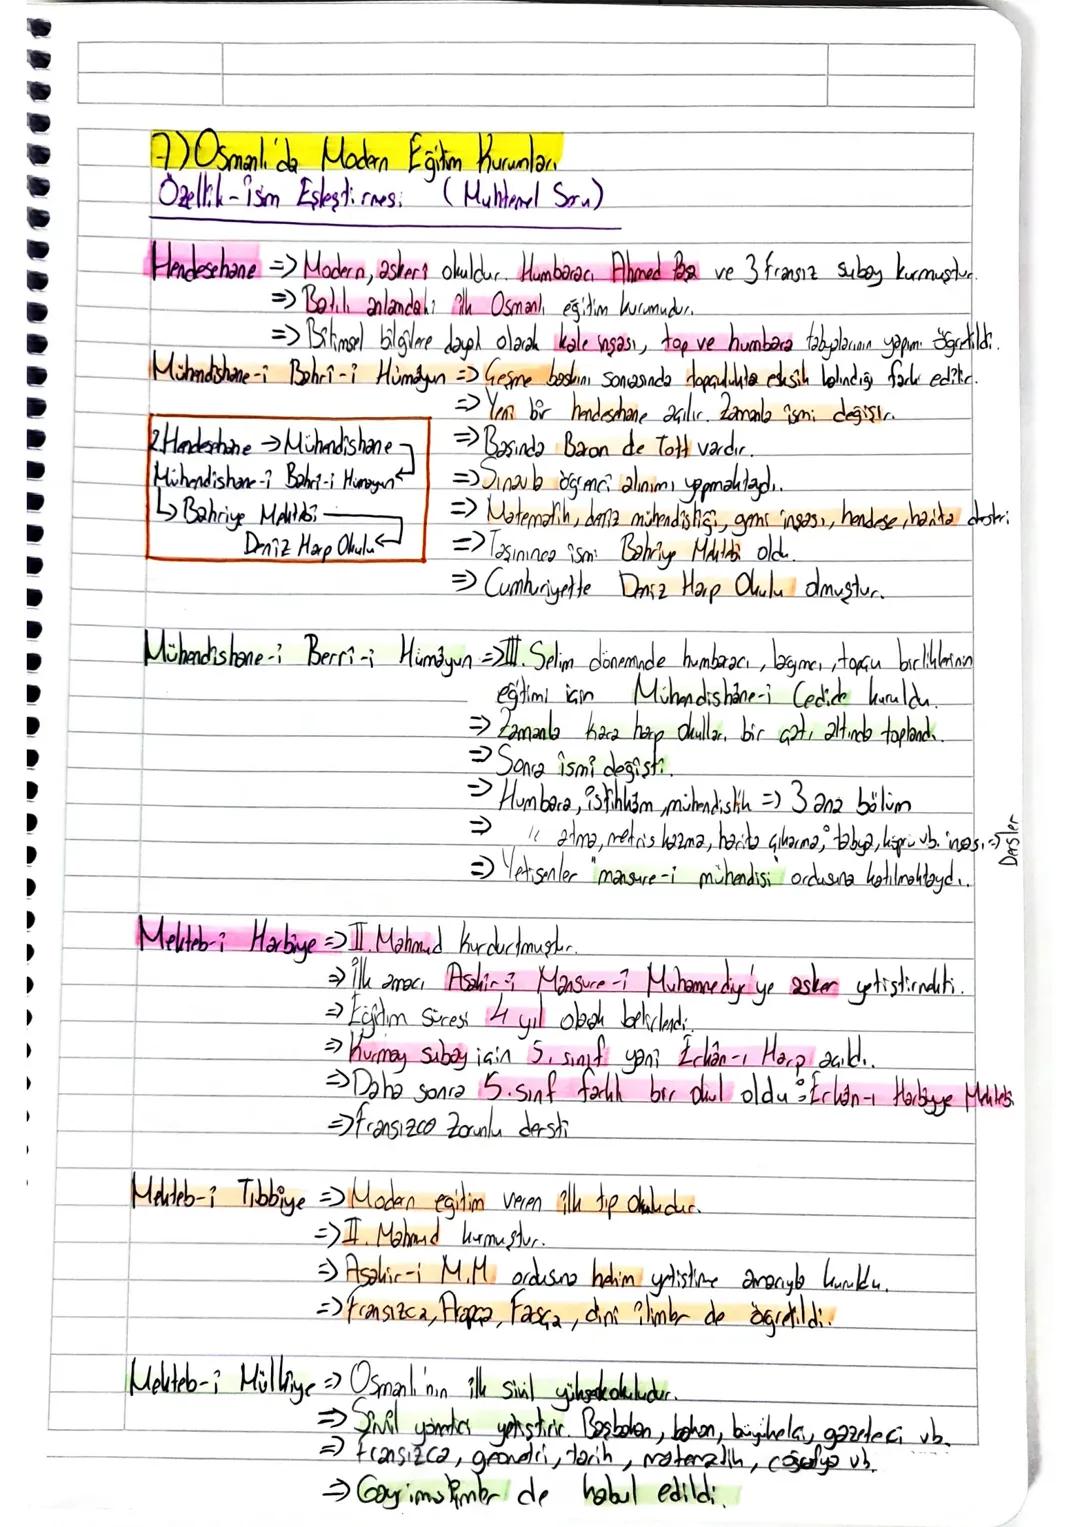 7) Osmanlı'da Modern Eğitim Kurumları
Özellik-İsim Eşleştirmesi (Muhtemel Soru)
Hendesehane => Modern, askeri okuldur. Humbaracı Ahmed Paşa ve 3 fransız subay kurmuştur.
=> Batılı anlamdaki ilk Osmanlı eğitim kurumudur.
=> Bilimsel bilgilere dayalı olarak kale inşası, top ve humbara tabyalarının yapımı öğretildi.
Mühendishane-i Bahri-i Hümâyun => Çeşme baskını sonrasında topçulukta eksik kalındığı fark edilir.
=> Yeni bir hendesehane açılır. Zamanla ismi değişir.
=> Başında Baron de Tott vardır.
=> Sınavla öğrenci alınımı yapmaktaydı.
=> Matematik, deniz mühendisliği, gemi inşası, hendese, harita dersleri
=> Taşınınca ismi Bahriye Mektebi oldu.
=> Cumhuriyette Deniz Harp Okulu olmuştur.
2. Hendesehane → Mühendishane
Mühendishane-i Bahri-i Hümayun
↳ Bahriye Mektebi
Deniz Harp Okulu
Mühendishane-i Berrî-i Hümâyun => III. Selim döneminde humbaracı, lağımcı, topçu birliklerinin
eğitimi için Mühendishâne-i Cedide kuruldu.
=> Zamanla kara harp okulları bir çatı altında toplandı.
=> Sonra ismi değişti.
=> Humbara, istihkâm, mühendislik => 3 ana bölüm
=> " atma, metris kazma, harita çıkarma, tabya, köprü vb. inşası => Dersler
=> Yetişenler "mansure-i mühendisi" ordusuna katılmaktaydı.
Mekteb-i Harbiye => II. Mahmud kurdurtmuştur.
=> İlk amacı Asâkir-i Mansure-i Muhammediye'ye asker yetiştirmekti.
=> Eğitim süresi 4 yıl olarak belirlendi.
=> Kurmay subay için 5. sınıf yani Erkân-ı Harp açıldı.
=> Daha sonra 5.sınıf farklı bir okul oldu: Erkân-ı Harbiyye Mektebi
=> Fransızca zorunlu dersti
Mekteb-i Tıbbiye => Modern eğitim veren ilk tıp okuludur.
=> II. Mahmud kurmuştur.
=> Asâkir-i M.M ordusuna hekim yetiştirme amacıyla kuruldu.
=> Fransızca, Arapça, Farsça, dini ilimler de öğretildi.
Mekteb-i Mülkiye => Osmanlı'nın ilk sivil yüksekokuludur.
=> Sivil yönetici yetiştirir. Başbakan, bakan, büyükelçi, gazeteci vb.
=> Fransızca, geometri, tarih, matematik, coğrafya vb.
=> Gayrimüslimler de kabul edildi.